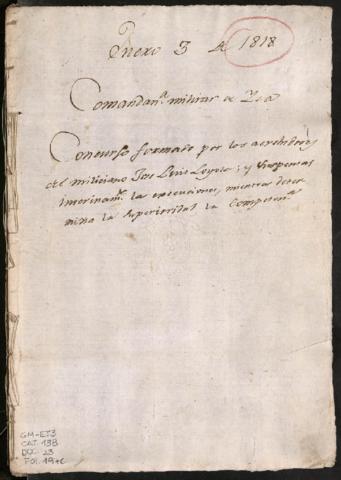 Enero 3 de 1818
Comandan.ª militar de
Concurso formado por los acrehedores
del miliciano Jose Luis Loyola; y suspensas
interinam.te las execuciones, mientras deter
mina la superioridad la Competen.ª
GM-ET3
CAT. 138
DOC. 23
FOL. 19+c